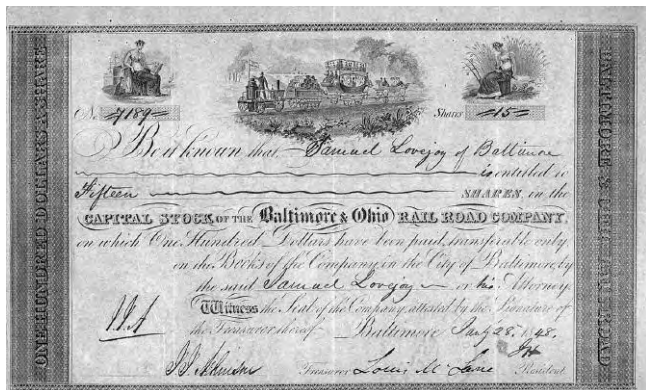 No. 7189 Shares 15
Be it known that Samuel Lovejoy of Baltimore
is entitled to
Fifteen SHARES in the
CAPITAL STOCK OF THE Baltimore & Ohio RAIL ROAD COMPANY,
on which One Hundred Dollars have been paid, transferable only
on the Books of the Company in the City of Baltimore, by
the said Samuel Lovejoy or his Attorney.
Witness the Seal of the Company, attested by the Signature of
the Treasurer thereof Baltimore 28, 1848.
Treasurer Louis McLane President
ONE HUNDRED DOLLARS A SHARE
BALTIMORE & OHIO RAIL ROAD